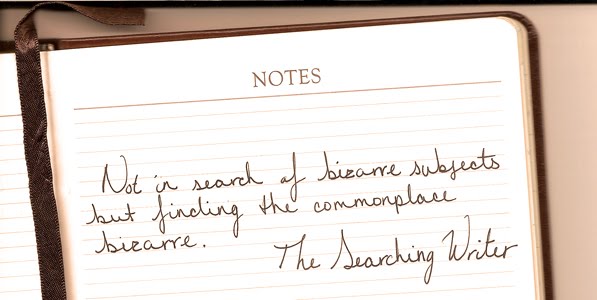 NOTES
Not in search of bizarre subjects
but finding the commonplace
bizarre.
The Searching Writer